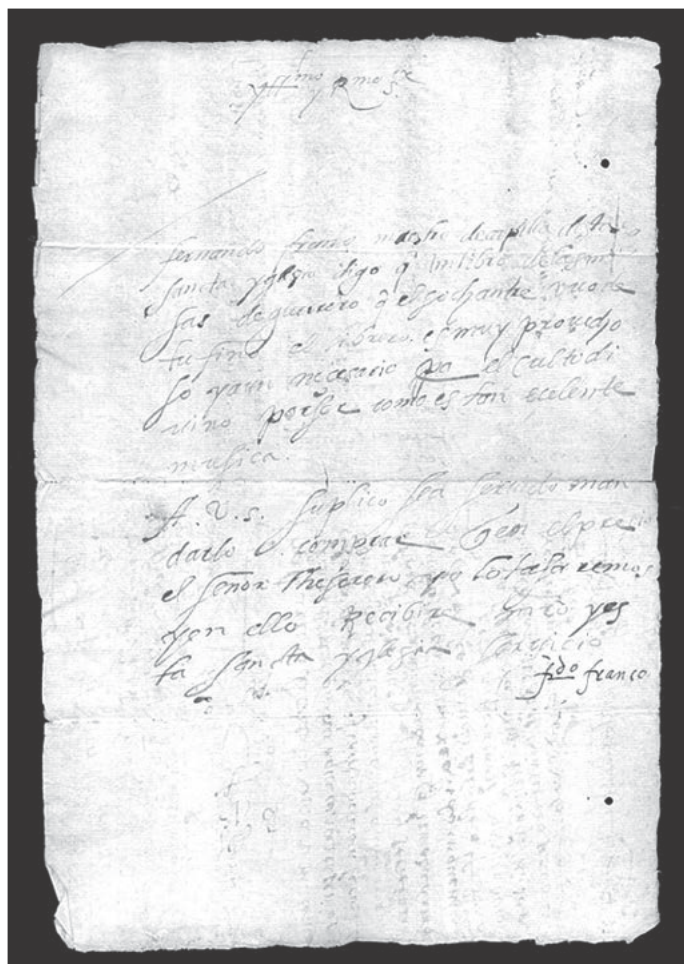 Yllmo y Rmo sr
fernando franco maestro de capilla desta
sancta yglesia digo q un libro de las mi
sas de guerrero q el sochantre
el librero es muy provecho
so y aun necesario pa el culto di
vino por ser como es tan ecelente
musica.
A. V. s. suplico sea servido man
darlo comprar q en el precio
el señor thesorero yo lo tasaremos
y en ello Recibire y es
ta sancta yglesia servicio
fdo franco